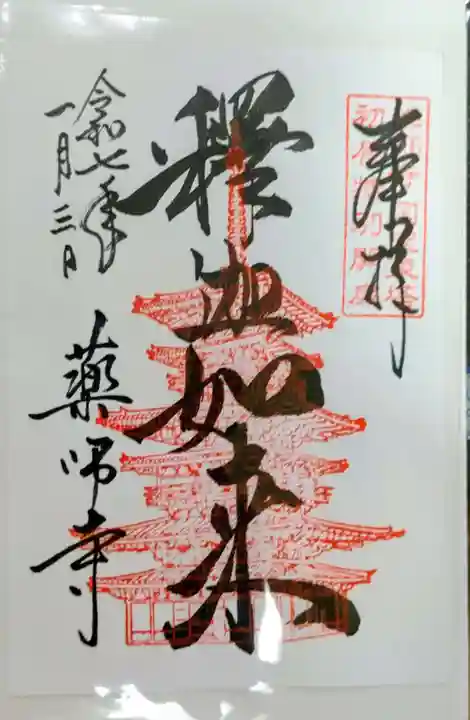 奉拝
釋迦如来
令和七年
一月三日
薬師寺